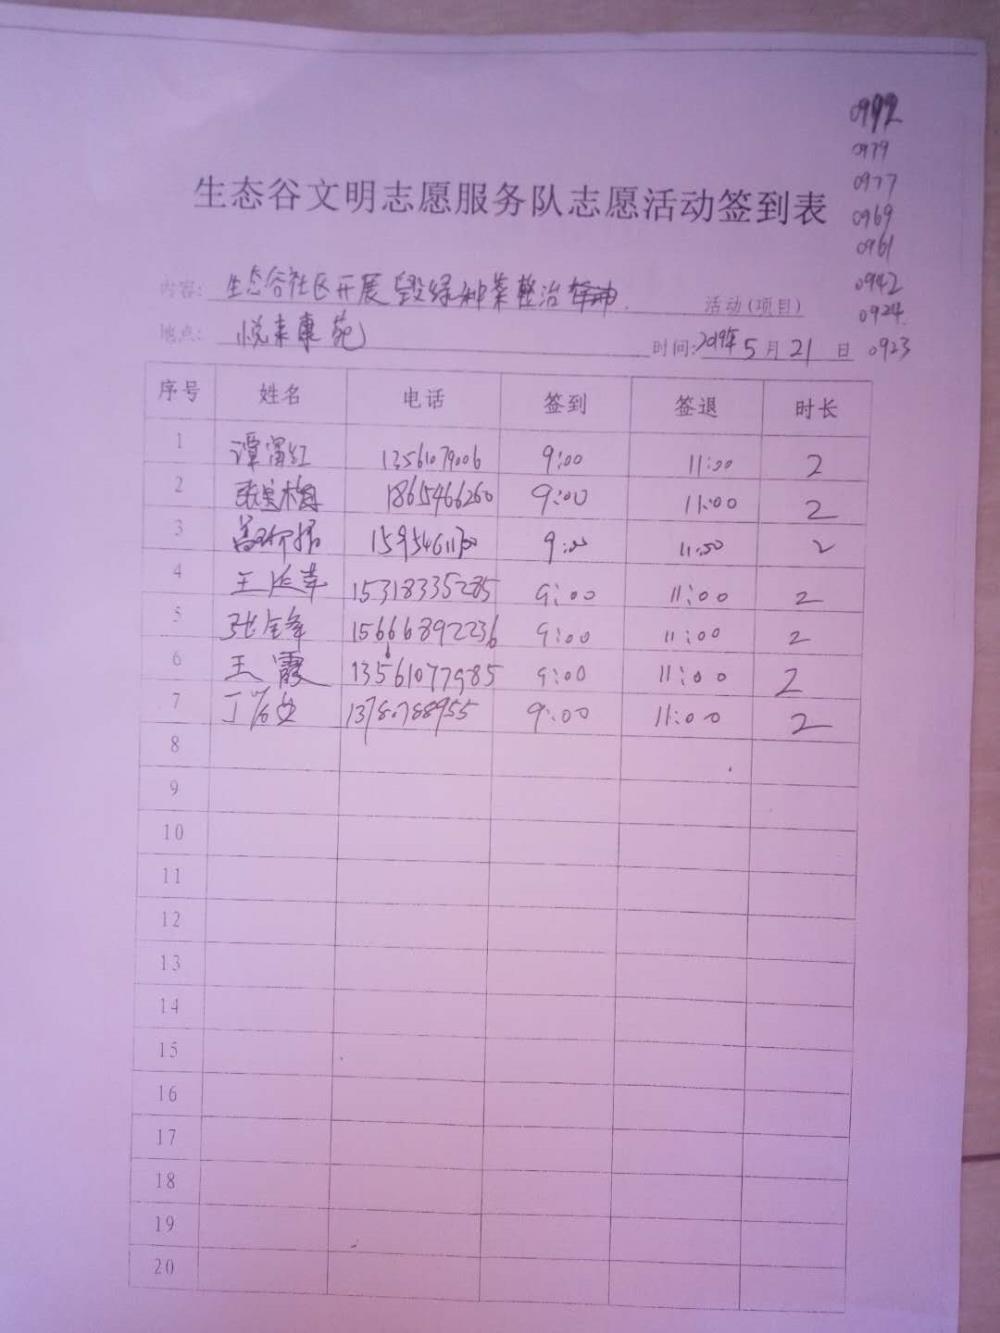 0992
0979
0977
0969
0961
0942
0924
0923
生态谷文明志愿服务队志愿活动签到表
内容: 生态谷社区开展毁绿种菜整治 活动(项目)
地点: 悦来康苑 时间: 2019年5月21日
序号 姓名 电话 签到 签退 时长
1 谭富红 13561079006 9:00 11:00 2
2 18615466260 9:00 11:00 2
3 9:00 11:00 2
4 王 15318335285 9:00 11:00 2
5 张 15666892236 9:00 11:00 2
6 王霞 13561077985 9:00 11:00 2
7 丁 9:00 11:00 2
8
9
10
11
12
13
14
15
16
17
18
19
20